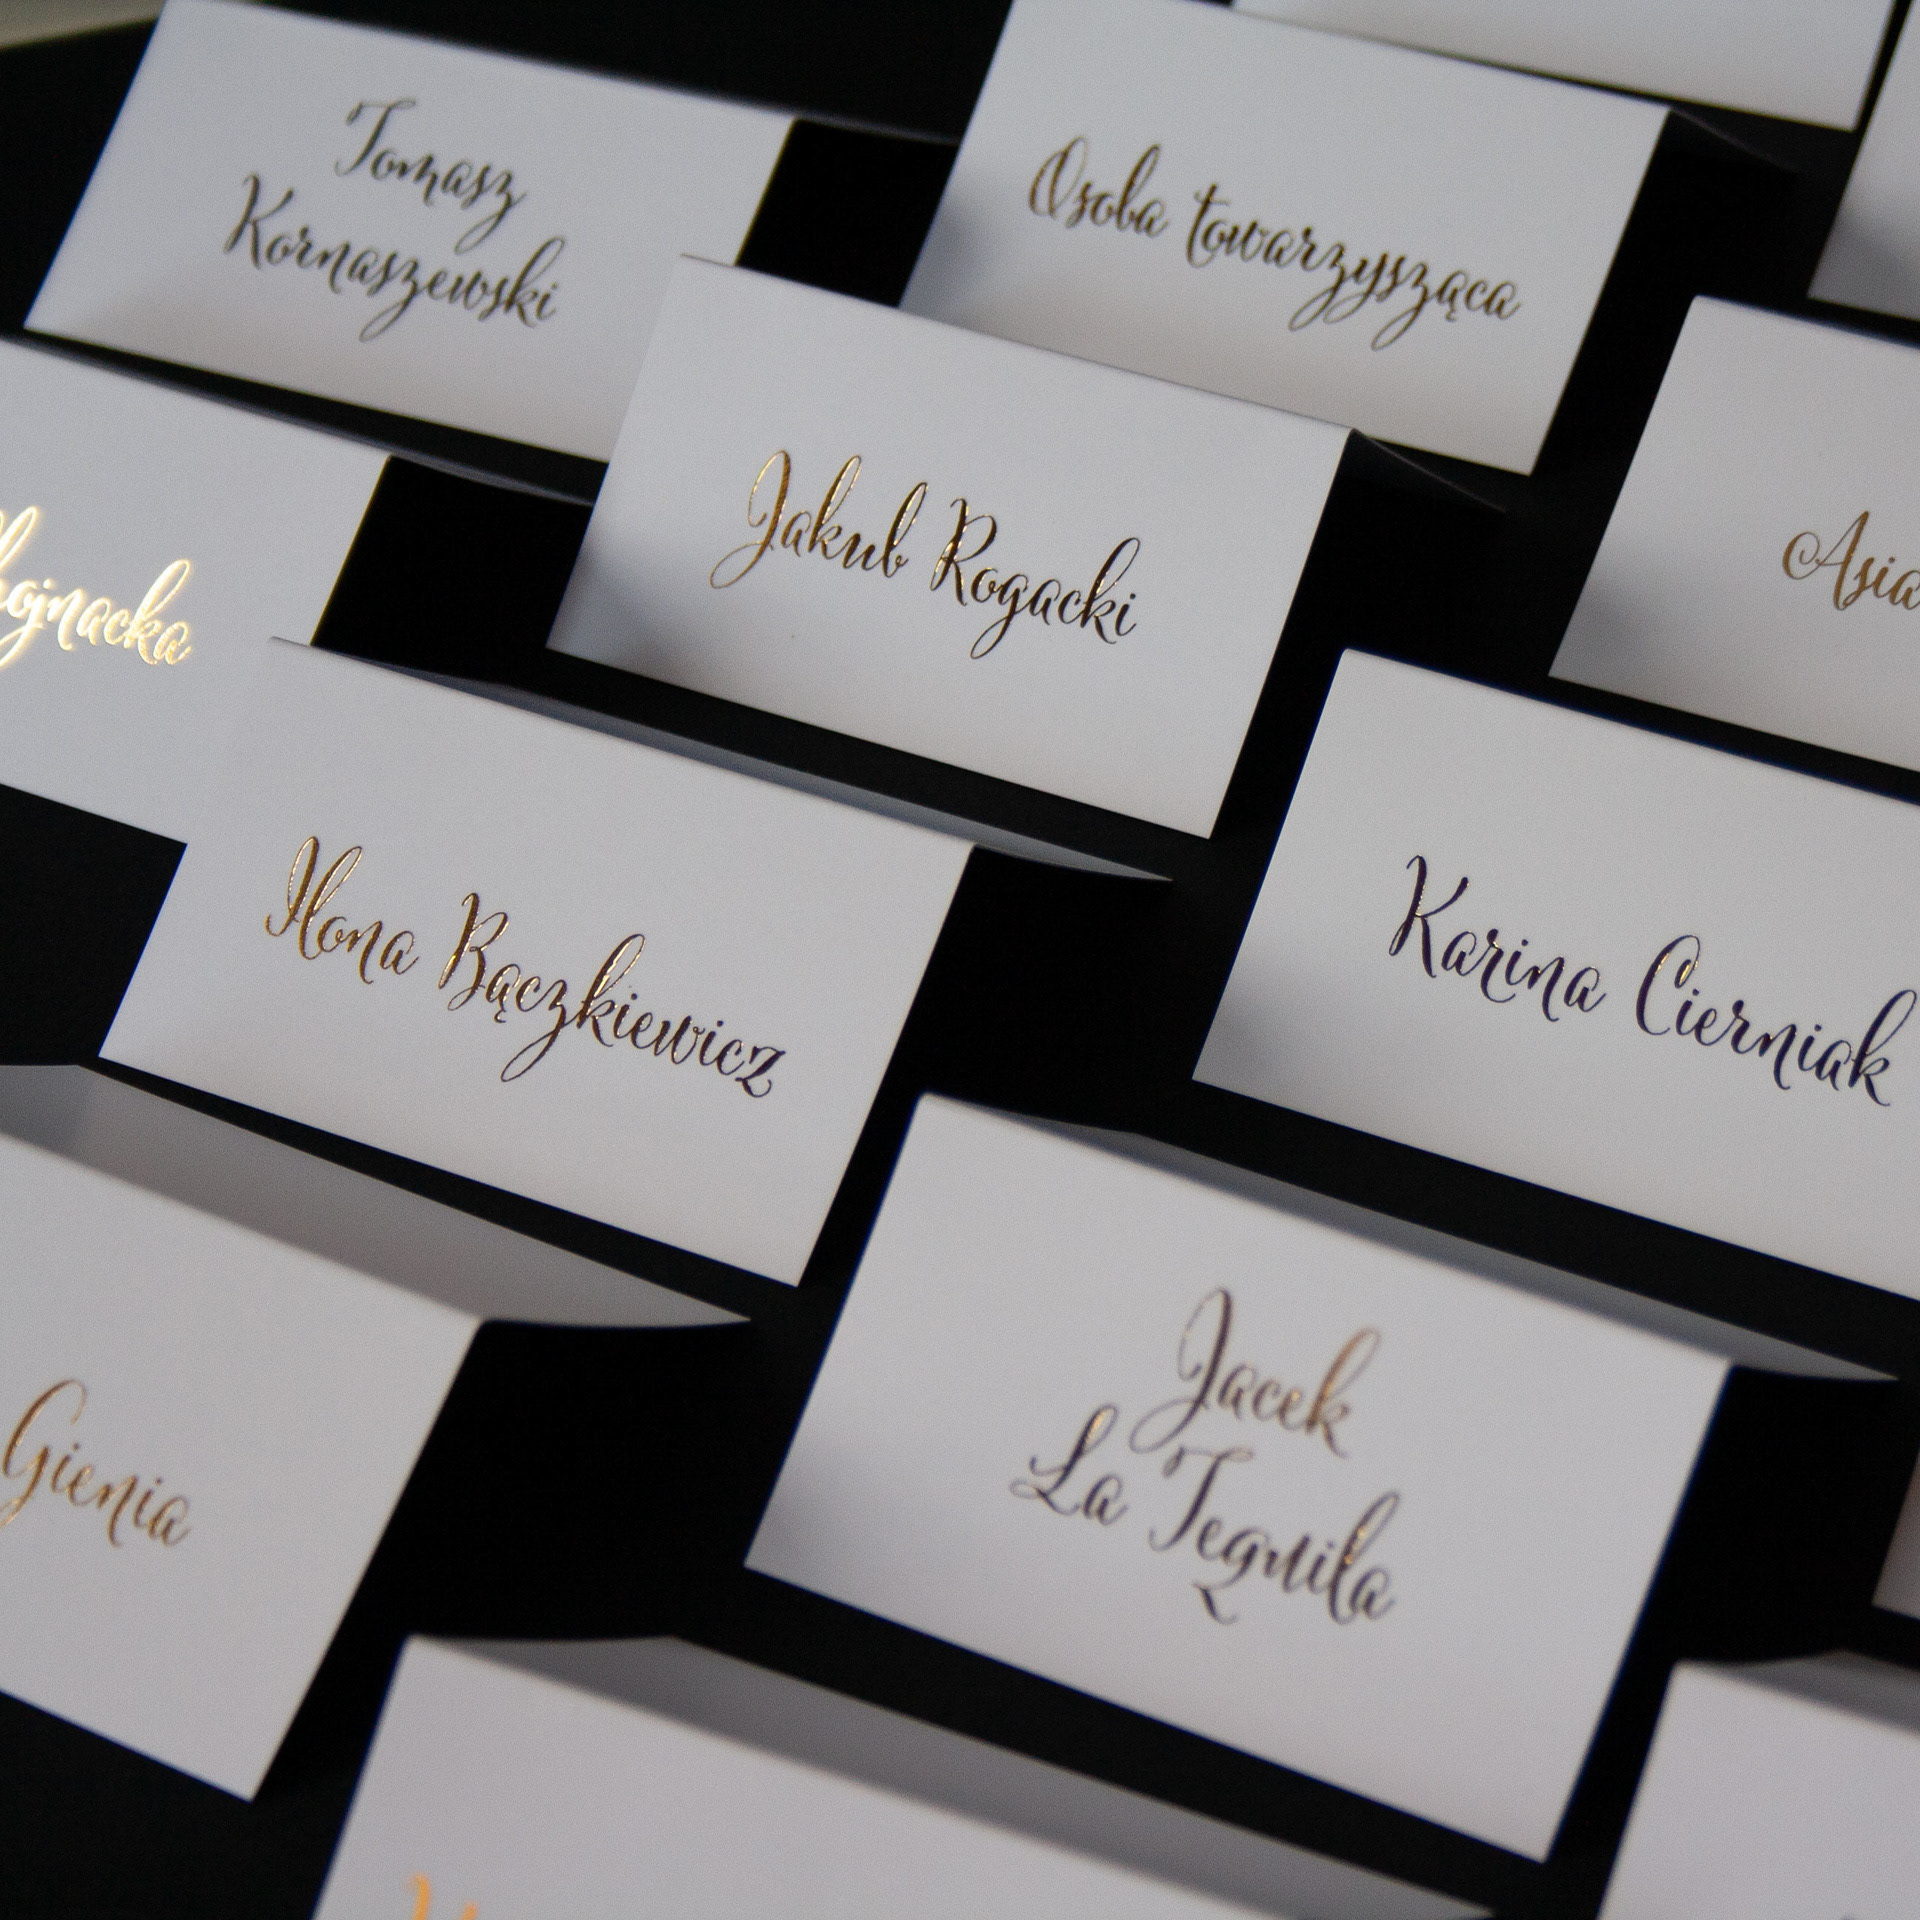 Tomasz
Kornaszewski
Osoba towarzysząca
Jakub Rogacki
Asia
Ilona Bączkiewicz
Karina Cierniak
Gienia
Jacek
La Tequila